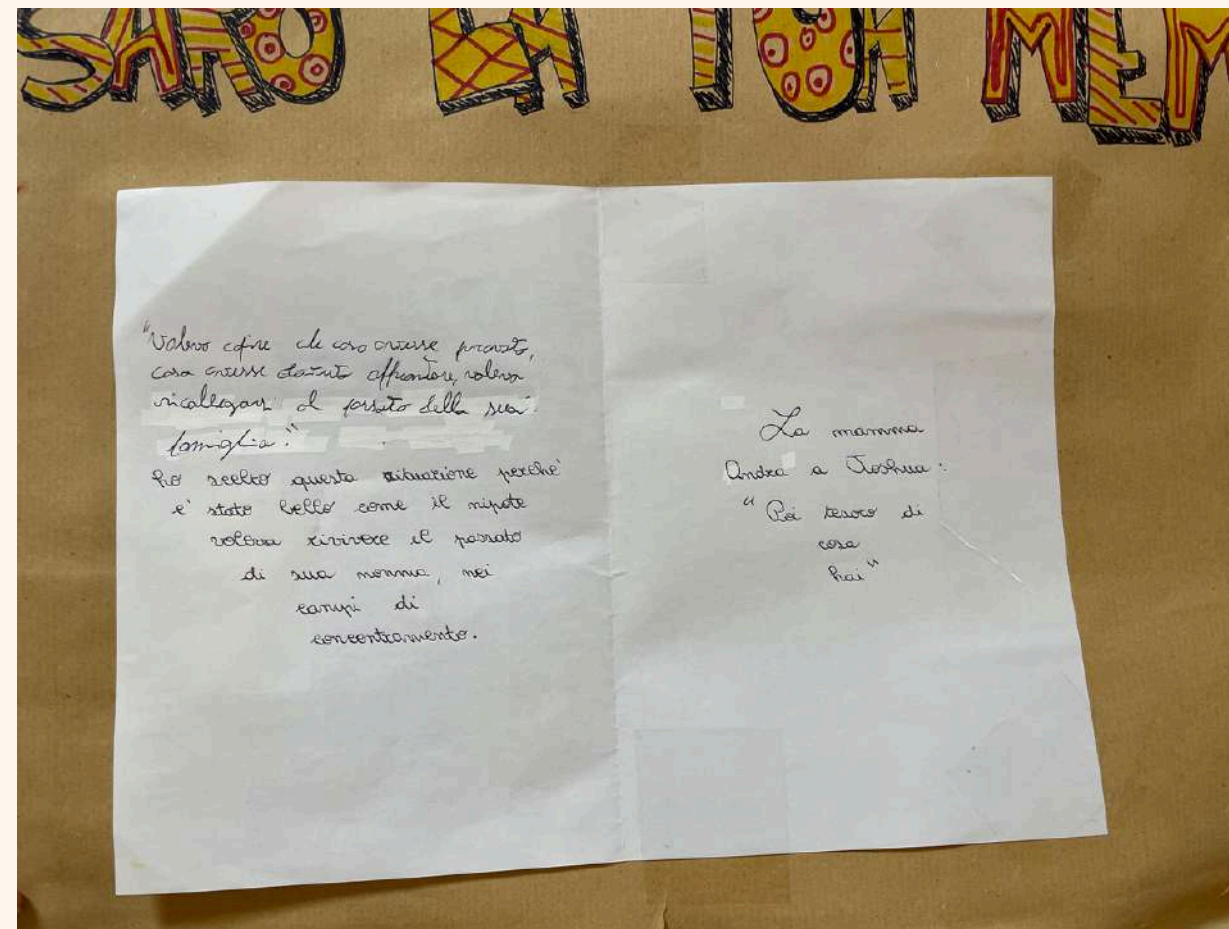 SARÒ LA TUA MEM
"Volevo capire che cosa avesse provato,
cosa avesse dovuto affrontare, voleva
ricallegarsi al passato della sua
famiglia."
ho scelto questa situazione perché
e' stato bello come il nipote
voleva rivivere il passato
di sua nonna, nei
campi di
concentramento.
La mamma
Andra a Joshua:
" Poi tesoro di
cosa
hai"